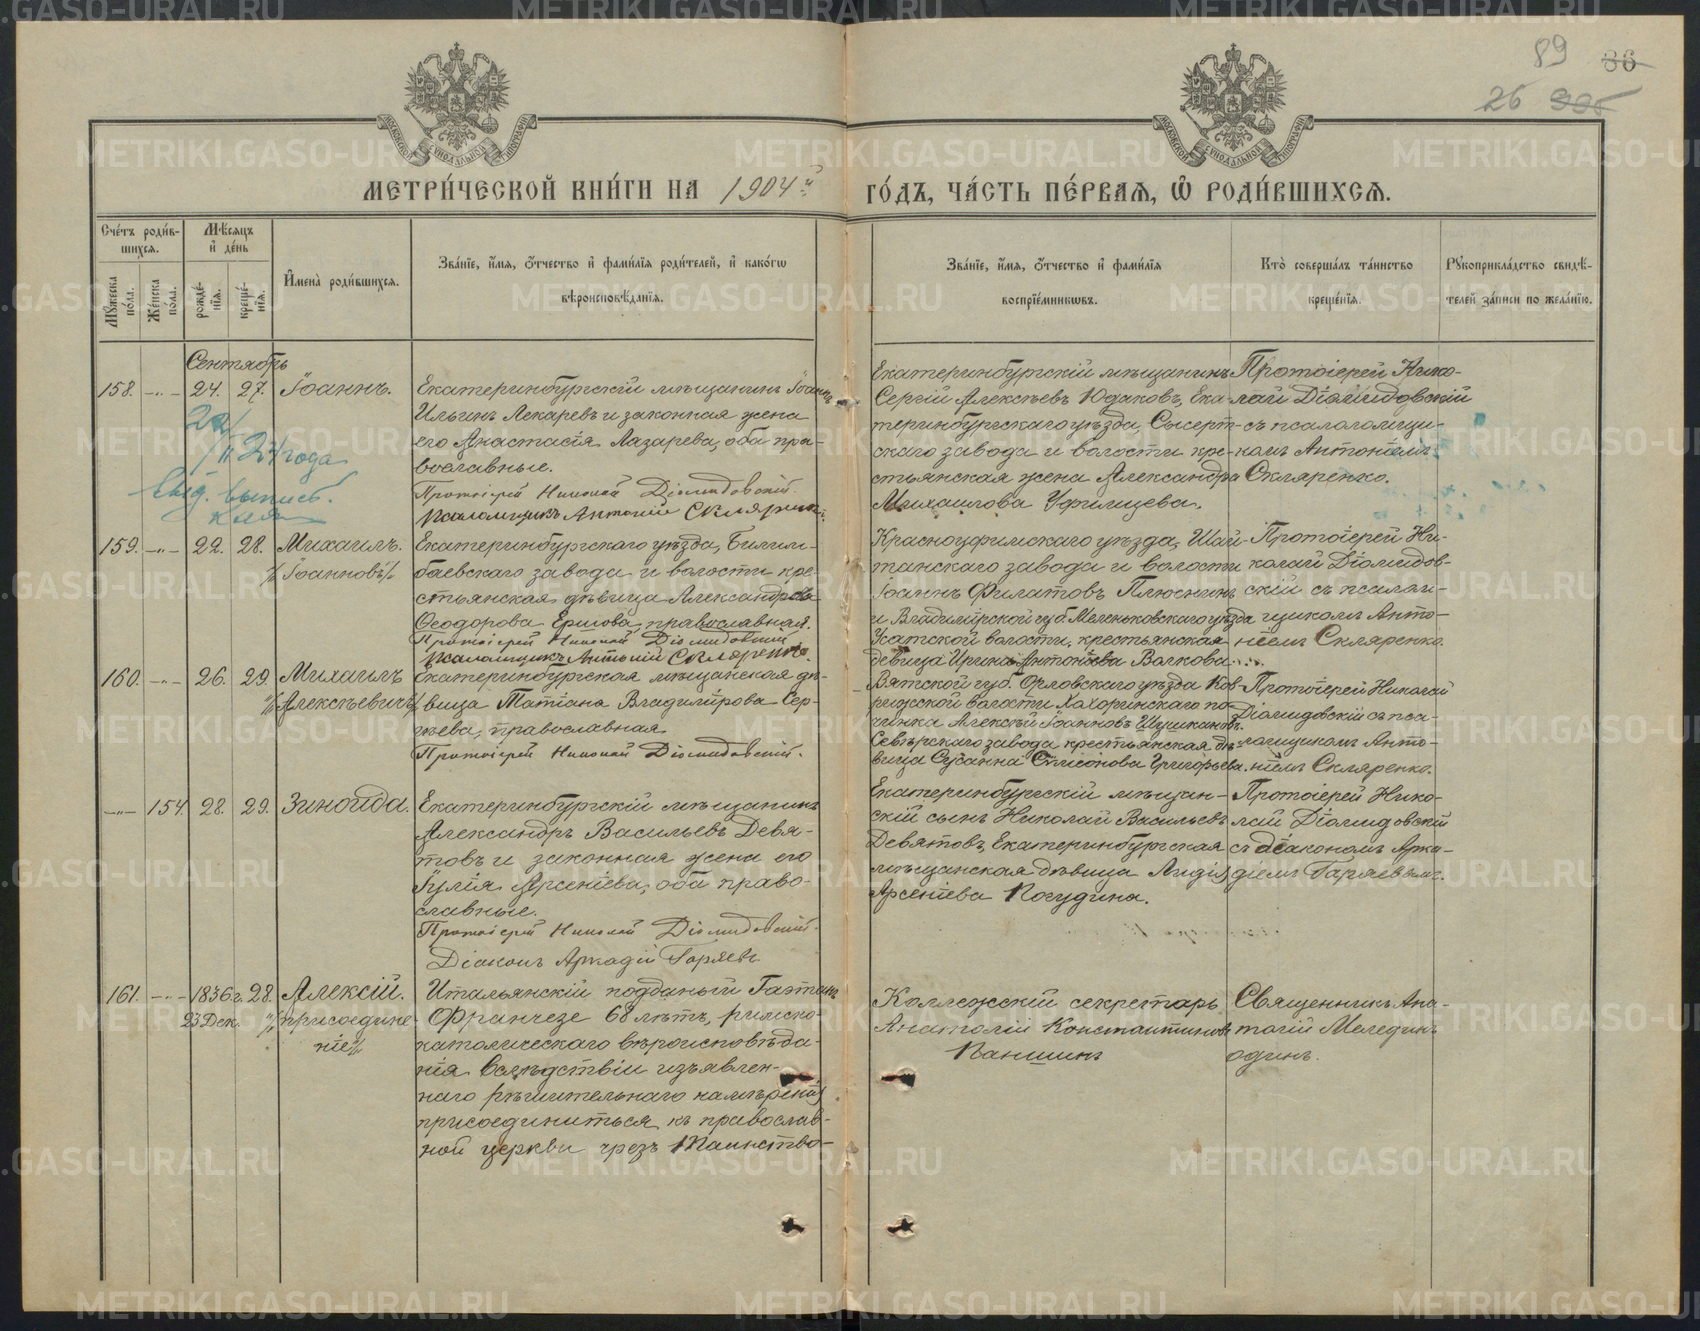 89 36
26 336
МЕТРИ́ЧЕСКОЙ КНИ́ГИ НА 1904й ГО́ДЪ, ЧА́СТЬ ПЕ́РВАЯ, Ѽ РОДИ́ВШИХСЯ.
Сче́тъ роди́в-
шихся.
Мꙋ́жеска по́ла.
Же́нска по́ла.
Мѣ́сяцъ и҆ де́нь
рожде́-нїя.
креще́-нїя.
И҆мена̀ роди́вшихся.
Зва́нїе, и҆́мя, ѻ҆́тчество и҆ фами́лїя роди́телей, и҆ како́гѡ
вѣроисповѣ́данїя.
Зва́нїе, и҆́мя, ѻ҆́тчество и҆ фами́лїя
воспрїе́мникѡвъ.
Кто̀ соверша́лъ та́инство
креще́нїя.
Рꙋкоприкла́дство свидѣ́-
телей за́писи по жела́нїю.
Сентябрь
158. -„- 24. 27. Іоаннъ.
Екатеринбургскій мѣщанинъ Іоаннъ
Ильинъ Лекаревъ и законная жена
его Анастасія Лазарева, оба пра-
вославные.
Протоіерей Николай Діомидовскій.
Псаломщикъ Антоній Скляренко.
22/II 24 года
выпись.
Екатеринбургскій мѣщанинъ
Сергій Алексѣевъ Юдаковъ, Ека-
теринбургскаго уѣзда, Сысерт-
скаго завода и волости кре-
стьянская жена Александра
Михаилова Уфимцева.
Протоіерей Нико-
лай Діомидовскій
съ псаломщи-
комъ Антоніемъ
Скляренко.
159. -„- 22. 28. Михаилъ.
Іоанновъ
Екатеринбургскаго уѣзда, Билим-
баевскаго завода и волости кре-
стьянская дѣвица Александра
Ѳеодорова Ершова, православная.
Протоіерей Николай Діомидовскій
Псаломщикъ Антоній Скляренко.
Красноуфимскаго уѣзда, Шай-
танскаго завода и волости
Іоаннъ Филатовъ Плюснинъ
и Владимірской губ. Меленьковскаго уѣзда
Усатской волости, крестьянская
девица Ирина Антоніева Волкова.
Протоіерей Ни-
колай Діомидов-
скій съ псалом-
щикомъ Анто-
ніемъ Скляренко.
160. -„- 26. 29. Михаилъ
Алексѣевичъ
Екатеринбургская мѣщанская дѣ-
вица Татіана Владимірова Сер-
гѣева, православная
Протоіерей Николай Діомидовскій.
Вятской губ. Орловскаго уѣзда Ков-
ружской волости Хохоринскаго по-
чинка Алексѣй Іоанновъ Шушкановъ
Сѣверскаго завода крестьянская дѣ-
вица Сусанна Григорьева.
Протоіерей Николай
Діомидовскій съ пса-
ломщикомъ Анто-
ніемъ Скляренко.
-„- 154. 28. 29. Зинаида.
Екатеринбургскій мѣщанинъ
Александръ Васильевъ Девя-
товъ и законная жена его
Іулія Арсеніева, оба право-
славные.
Протоіерей Николай Діомидовскій.
Діаконъ Аркадій Гаряевъ
Екатеринбургскій мѣщан-
скій сынъ Николай Васильевъ
Девятовъ, Екатеринбургская
мѣщанская дѣвица Лидія
Арсеніева Погудина.
Протоіерей Нико-
лай Діомидовскій
съ діакономъ Арка-
діемъ Гаряевымъ.
161. -„- 1836 г. 28. Алексій.
23 Дек. присоедине-
ніе
Итальянскій подданый Гаэтанъ
Франчезе 68 лѣтъ, римско-
католическаго вѣроисповѣда-
нія вслѣдствіи изъявлен-
наго рѣшительнаго намѣренія
присоединиться къ православ-
ной церкви чрезъ Таинство-
Коллежскій секретарь
Анатолій Константиновъ
Паншинъ
Священникъ Ана-
толій Мелединъ
одинъ.